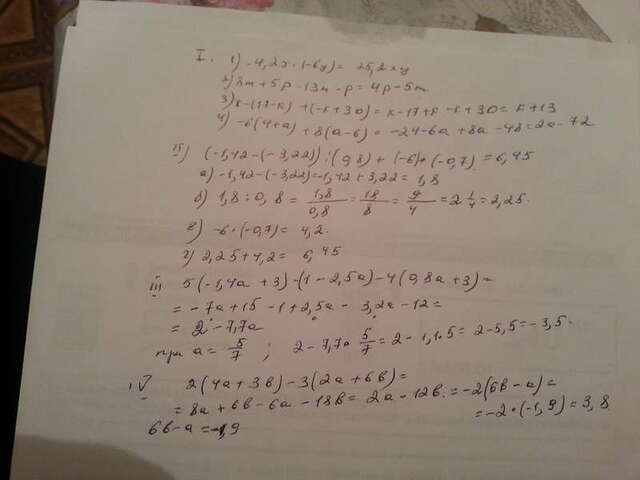 I. 1) -4,2x·(-6y)= 25,2xy
2) 8m+5p-13m-p=4p-5m
3) k-(17-k)+(-k+30)=k-17+k-k+30=k+13
4) -6(4+a)+8(a-6)=-24-6a+8a-48=2a-72
II) (-1,42-(-3,22)):(0,8)+(-6)·(-0,7)=6,45
а) -1,42-(-3,22)=-1,42+3,22=1,8
б) 1,8:0,8=1,8/0,8=18/8=9/4=2 1/4=2,25.
в) -6·(-0,7)=4,2.
г) 2,25+4,2=6,45
III 5(-1,4a+3)-(1-2,5a)-4(0,8a+3)=
=-7a+15-1+2,5a-3,2a-12=
=2-7,7a
при a=5/7; 2-7,7·5/7=2-1,1·5=2-5,5=-3,5.
IV 2(4a+3в)-3(2a+6в)=
=8a+6в-6a-18в=2a-12в=-2(6в-a)=
=-2·(-1,9)=3,8
6в-a=-1,9